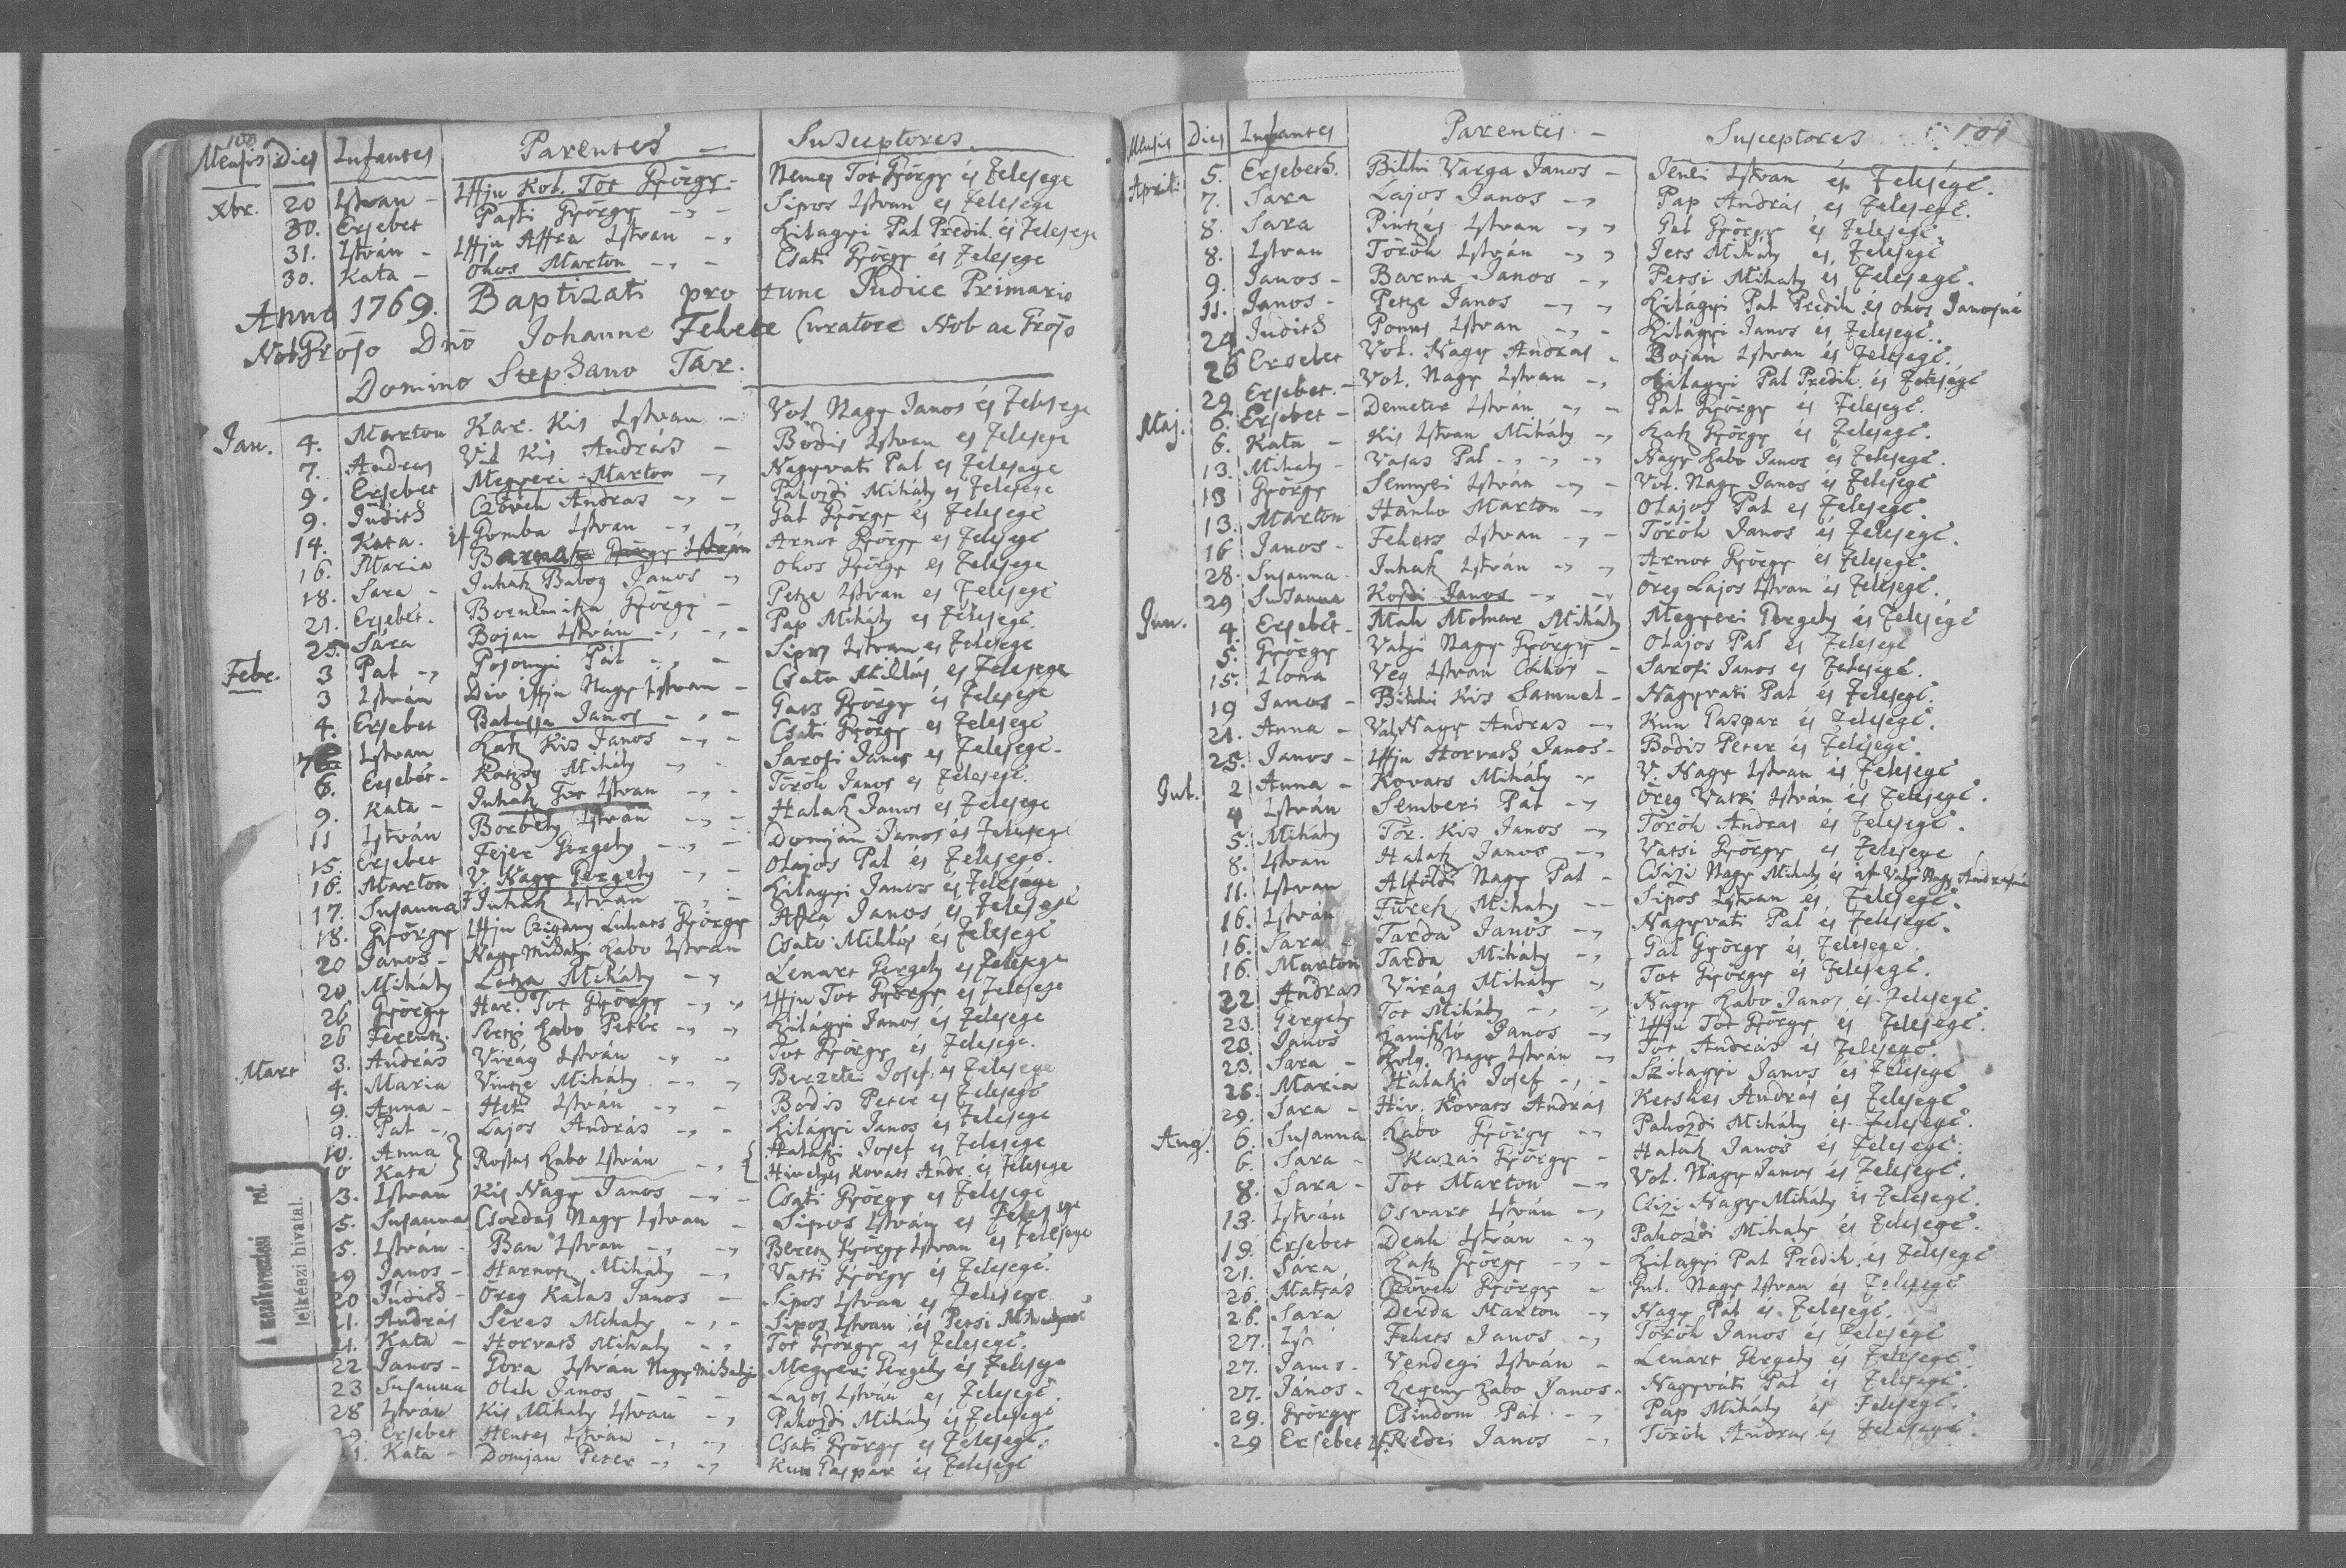 100
Mensis Dies Infantes Parentes — Susceptores
Xbr. 20 Istvan - Iffju Kol. Tot György - Nemes Tot György és Felesege
30. Ersebet Pasti György -,, - Sipos Istvan es Felesege
31. István - Iffju Affra Istvan -,, Szilagyi Pal Predik. és Felesege
30. Kata - Okos Marton -,, - Csati György és Felesege
Anno 1769. Baptizati pro tunc Judice Primario
Nob Grõso Dnõ Johanne Fekete Curatore Nob ac Grõso
Domino Stephano Tar.
Jan. 4. Marton Kar. Kis Istvan - Vol. Nagy Janos és Felesege
7. Andras Vid Kis András - Bodis Istvan es Felesege
9. Ersebet Megyeri Marton -,, Nagyvati Pal es Felesege
9. Judith Czöveh Andras -,, - Pakozdi Mihály es Felesege
14. Kata. if Gomba Istvan -,, -,, Gal György és Felesege
16. Maria György István Arnot György es Felesege
18. Sara - Juhasz Babog Janos -,, Okos György es Felesege
21. Ersebet. Bornemisza György - Petze Istvan es Felesege
25. Sára Bojan István -,, -,, - Pap Mihály es Felesege.
Febr. 3 Pal -,, Posonyi Pál -,, - Sipos Istvan es Felesege
3 István Div iffju Nagy Istvan - Csato Miklós es Felesege
4. Ersebet Balassa Janos -,, - Gacs György és Felesege
7 Istvan Szasz Kis Janos -,, - Csati György es Felesege
6. Ersebet - Katzoy Mihály -,, - Sarosi János es Felesege.
9. Kata - Juhasz Tot Istvan -,, - Török Janos es Felesege.
11 István Borbély Istvan -,, - Halasz Janos es Felesege
15. Ersebet Fejer Gergely -,, - Domjan Janos és Felesege
16. Marton V. Nagy Gergely -,, - Olajos Pal és Felesege.
17. Susanna Juhasz Istvan -,, - Szilagyi Janos és Felesege
18. György Iffju Czigany Lukats György Affra Janos és Felesege
20 Janos - Nagy Mihalyi Szabo Istvan Csato Miklós és Felesege
20 Mihály Lotza Mihály -,, Lenart Gergely es Felesege
26 György Har. Tot György -,, -,, Iffju Tot György es Felesege
26 Ferentz. Szabo Peter -,, -,, Szilágyi Janos és Felesege
Mart 3. András Virág István -,, -,, Tot György és Felesege.
4. Maria Vintze Mihály -,, -,, Berzetei Josef es Felesege
9. Anna - Heti Istvan -,, - Bodis Peter es Felesege
9. Pal -,, Lajos András -,, - Szilagyi Janos és Felesege
10. Anna } Rostas Szabo István -,, { Halaszi Josef es Felesege
10 Kata Hivelyes Kovats Andr. és Felesege
13. Istvan Kis Nagy Janos -,, - Csati György es Felesege
15. Susanna Csordas Nagy Istvan - Sipos István es Felesege
15. István - Ban Istvan -,, -,, Beretz György Istvan és Felesege
19 Janos - Harnosz Mihály -,, Vatsi György és Felesege.
20 Judith - Öreg Kalas Janos - Sipos Istvan es Felesege
21. András Seres Mihaly -,, - Sipos Istvan és Persi Mihalyné
21. Kata - Horvath Mihály -,, Tot György es Felesege.
22 Janos - Gora István Nagy Mihalyi Megyeri Gergely és Felesege
23 Susanna Oleh Janos - - - Lajos István es Felesege.
28 István Kis Mihaly Istvan -,, Pakozdi Mihály és Felesege
29. Ersebet Hentes Istvan -,, -,, Csati György es Felesege.
31. Kata - Domjan Peter -,, -,, Kun Gaspar és Felesege
A mezőkeresztesi ref.
lelkészi hivatal.
Mensis Dies Infantes Parentes - Susceptores 101
April: 5. Ersebeth. Bikki Varga Janos - Jenei Istvan és Felesége.
7. Sara Lajos Janos -,, Pap András es Felesege.
8. Sara Pintzés Istvan -,, Gál György és Felesége.
8. Istvan Török István -,, Jets Mihály es Felesége
9. Janos - Barna Janos -,, Persi Mihaly es Felesege.
11. Janos - Petze Janos -,, -,, Szilágyi Pal Predik. és Okos Janosné
24 Judith Ponus Istvan -,, - Szilágyi Janos és Felesege.
26 Ersebet Vol. Nagy Andras - Boján Istvan és Felesege.
29 Ersebet. Vol. Nagy Istvan -,, Szilagyi Pal Predik. és Felesége
Maj. 6. Ersebet - Demeter István -,, - Gal György és Felesegé.
6. Kata - Kis Istvan Mihály -,, Szasz György és Felesegé.
13. Mihaly - Vasas Pal -,, -,, Nagy Szabo Janos es Felesegé.
13 György Sennyei István -,, - Vol. Nagy Janos és Felesegé
13. Marton Hanko Marton -,, Olajos Pal es Felesegé.
16 Janos - Fekets Istvan -,, - Török Janos és Felesegé.
28. Susanna - Juhasz István -,, Arnot György és Felesegé.
29 Susanna Kosdi Janos -,, -,, Öreg Lajos Istvan és Felesegé.
Jun. 4. Ersebét - Mak Molnar Mihály Megyeri Gergely és Felesegé
5. György Valyi Nagy György - Olajos Pal és Felesegé
15. Ilona Veg Istvan - Sarosi Janos es Felesegé.
19 Janos - Bikki Kis Samuel - Nagyvati Pal és Felesegé.
21. Anna - Valy Nagy Andras -,, Kun Gaspar és Felesegé.
25. Janos - Iffju Horvath Janos - Bodis Peter és Felesegé.
Jul. 2 Anna - Kovats Mihály -,, V. Nagy Istvan és Felesegé
4 István Semberi Pal -,, Öreg Vatsi István és Felesegé.
5. Mihály Tor. Kis Janos -,, Török Andras és Felesegé.
8. Istvan Halasz Janos -,, Vatsi György es Felesege
11. Istvan Alföldi Nagy Pal - Csizi Nagy Mihaly és if Valy Nagy Andrásné
16. István Füresz Mihaly -- Sipos Istvan és Felesegé.
16. Sara - Tarda Janos -,, Nagyvati Pal és Felesegé.
16. Marton Tarda Mihály -,, Gal György és Felesege.
22 Andras Virág Mihály -,, Tot György és Felesegé.
23. Gergely Tot Mihály -,, -,, Nagy Szabo Janos és Felesegé.
23. Janos Szaniszló Janos -,, Iffju Tot György és Felesegé.
23. Sara - Szolg. Nagy István -,, Tot András és Felesegé.
25. Maria Halaszi Josef -,, - Szilagyi Janos és Felesegé
29. Sara - Hiv. Kovats András Ketskes András és Felesegé
Aug. 6. Susanna Szabo György -,, Pakozdi Mihály és Felesegé.
6. Sara - Kazai György - Halasz Janos és Felesegé.
8. Sara - Tot Marton -,, Vol. Nagy Janos és Felesegé.
13. István Osvart István -,, Csizi Nagy Mihály és Felesegé.
19. Ersebet Deak István -,, Pakozdi Mihaly és Felesegé.
21. Sára Szasz György -,, - Szilagyi Pal Predik. es Felesegé
26. Matyás Czöveh György - Gul. Nagy Istvan és Felesegé
26. Sara Derda Marton -,, Nagy Pál es Felesegé.
27. Fekets Janos -,, Török Janos és Felesegé
27. Janos - Vendegi István - Lenart Gergely és Felesegé.
27. János - Szegeny Szabo Janos - Nagyváti Pal és Felesegé.
29. György Csindom Pál -,, Pap Mihály és Felesegé.
29 Ersebet if. Redei Janos -,, Török András és Felesegé.